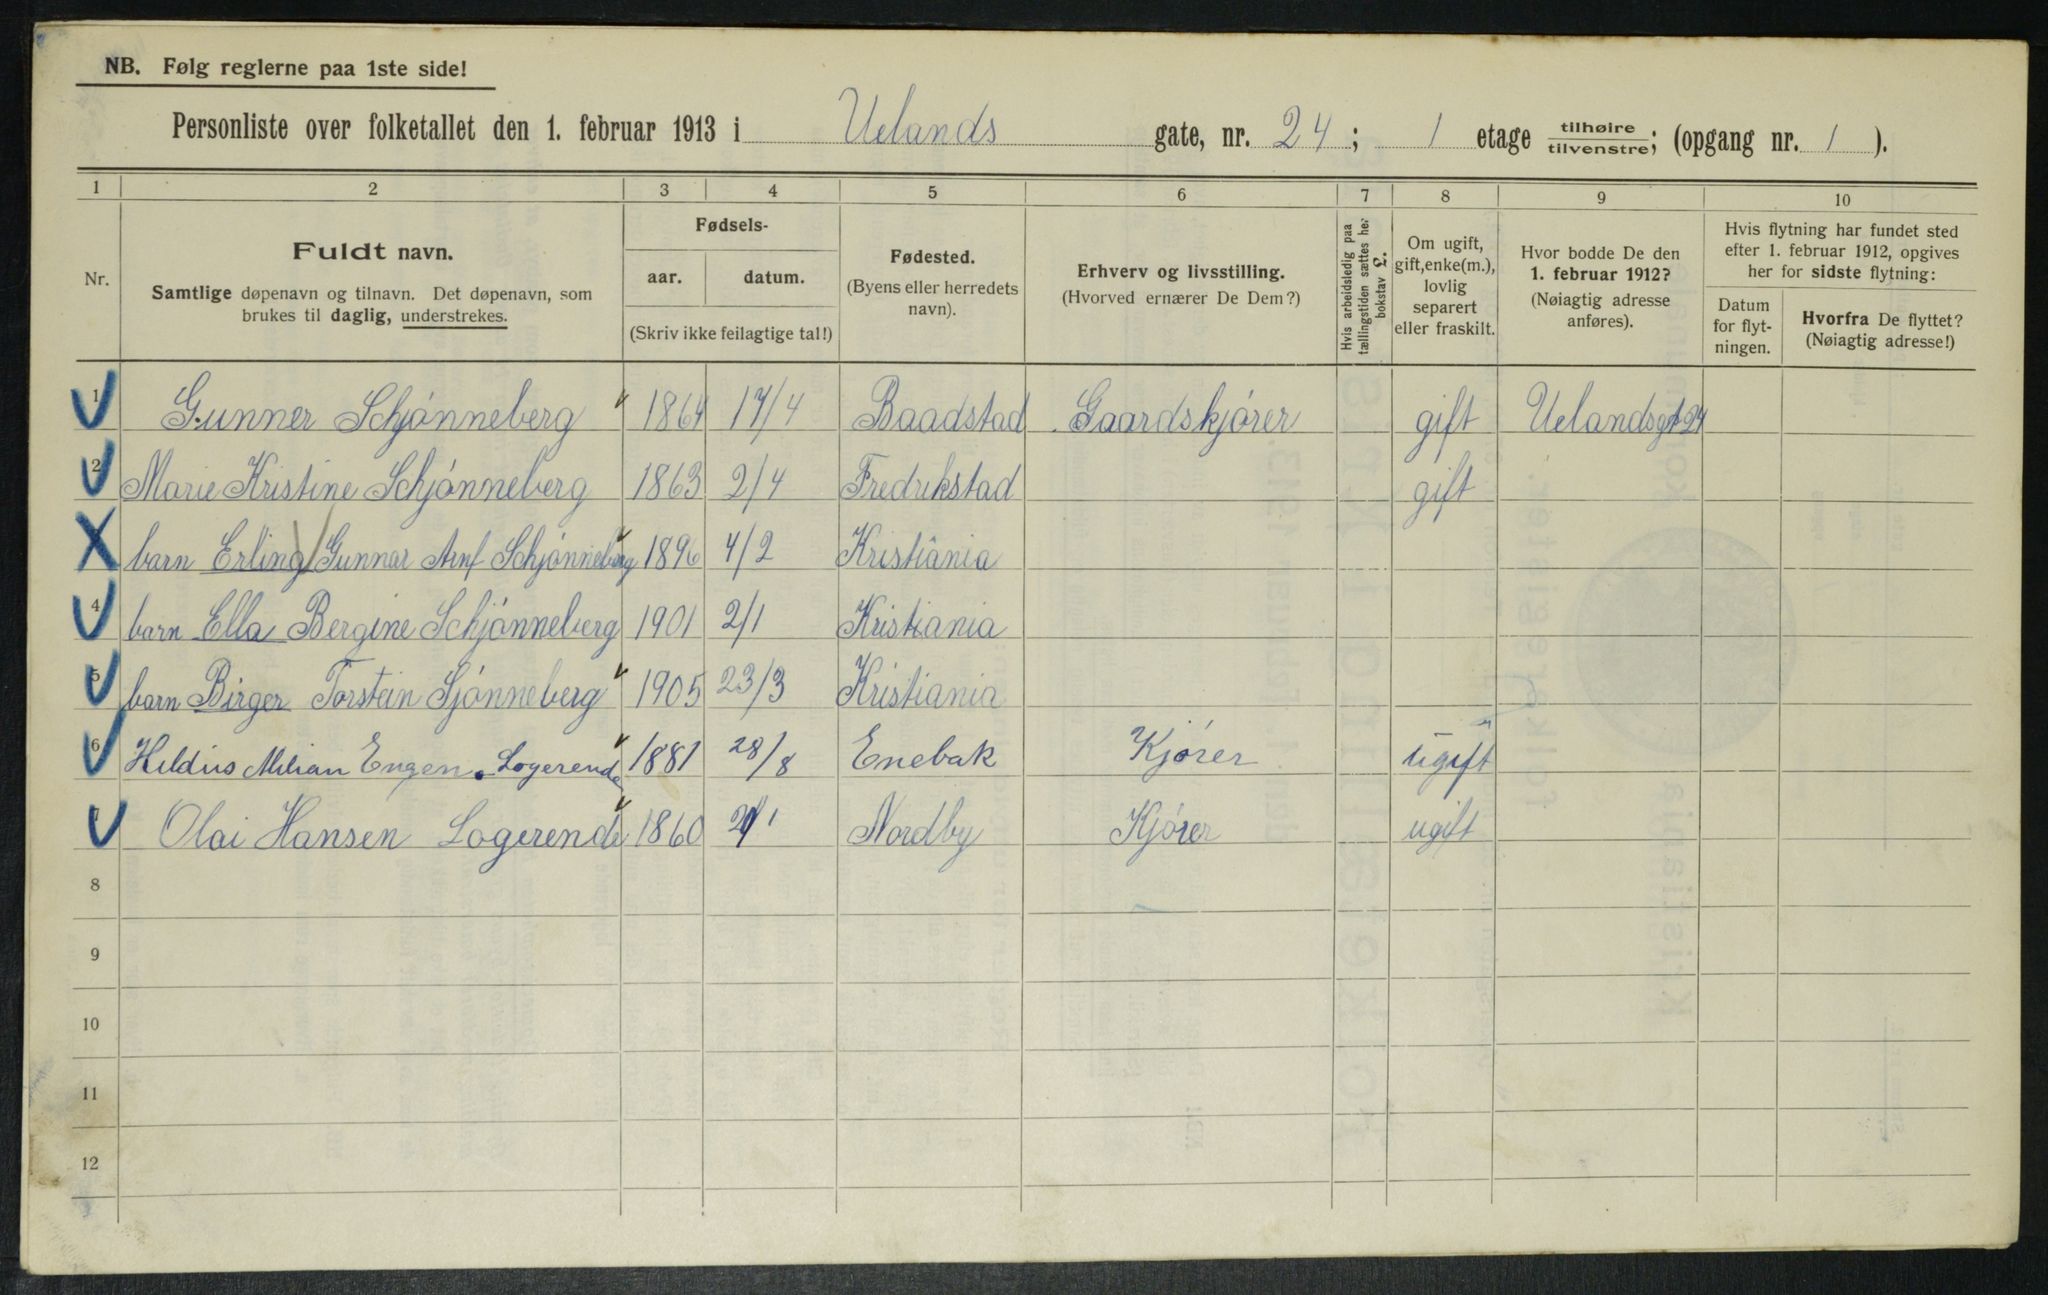 NB. Følg reglerne paa 1ste side!
Personliste over folketallet den 1. februar 1913 i Uelands gate, nr. 24; 1 etage tilhøire tilvenstre; (opgang nr. 1).
1 2 3 4 5 6 7 8 9 10
Nr.
Fuldt navn.
Samtlige døpenavn og tilnavn. Det døpenavn, som
brukes til daglig, understrekes.
Fødsels-
aar. datum.
(Skriv ikke feilagtige tal!)
Fødested.
(Byens eller herredets
navn).
Erhverv og livsstilling.
(Hvorved ernærer De Dem?)
Hvis arbeidsledig paa
tællingstiden sættes her
bokstav L.
Om ugift,
gift, enke(m.),
lovlig
separert
eller fraskilt.
Hvor bodde De den
1. februar 1912?
(Nøiagtig adresse
anføres).
Hvis flytning har fundet sted
efter 1. februar 1912, opgives
her for sidste flytning:
Datum
for flyt-
ningen.
Hvorfra De flyttet?
(Nøiagtig adresse!)
1 Gunner Schjønneberg 1864 17/4 Baadstad Gaardskjører gift Uelandsgt 24
2 Marie Kristine Schjønneberg 1863 2/4 Fredrikstad gift
barn Erling Gunnar Arnf Schjønneberg 1896 4/2 Kristiania
4 barn Ella Bergine Schjønneberg 1901 2/1 Kristiania
5 barn Birger Torstein Sjønneberg 1905 23/3 Kristiania
6 Hildus Milian Engen. Logerende 1881 28/8 Enebak Kjører ugift
7 Olai Hansen Logerende 1860 Nordby Kjører ugift
8
9
10
11
12